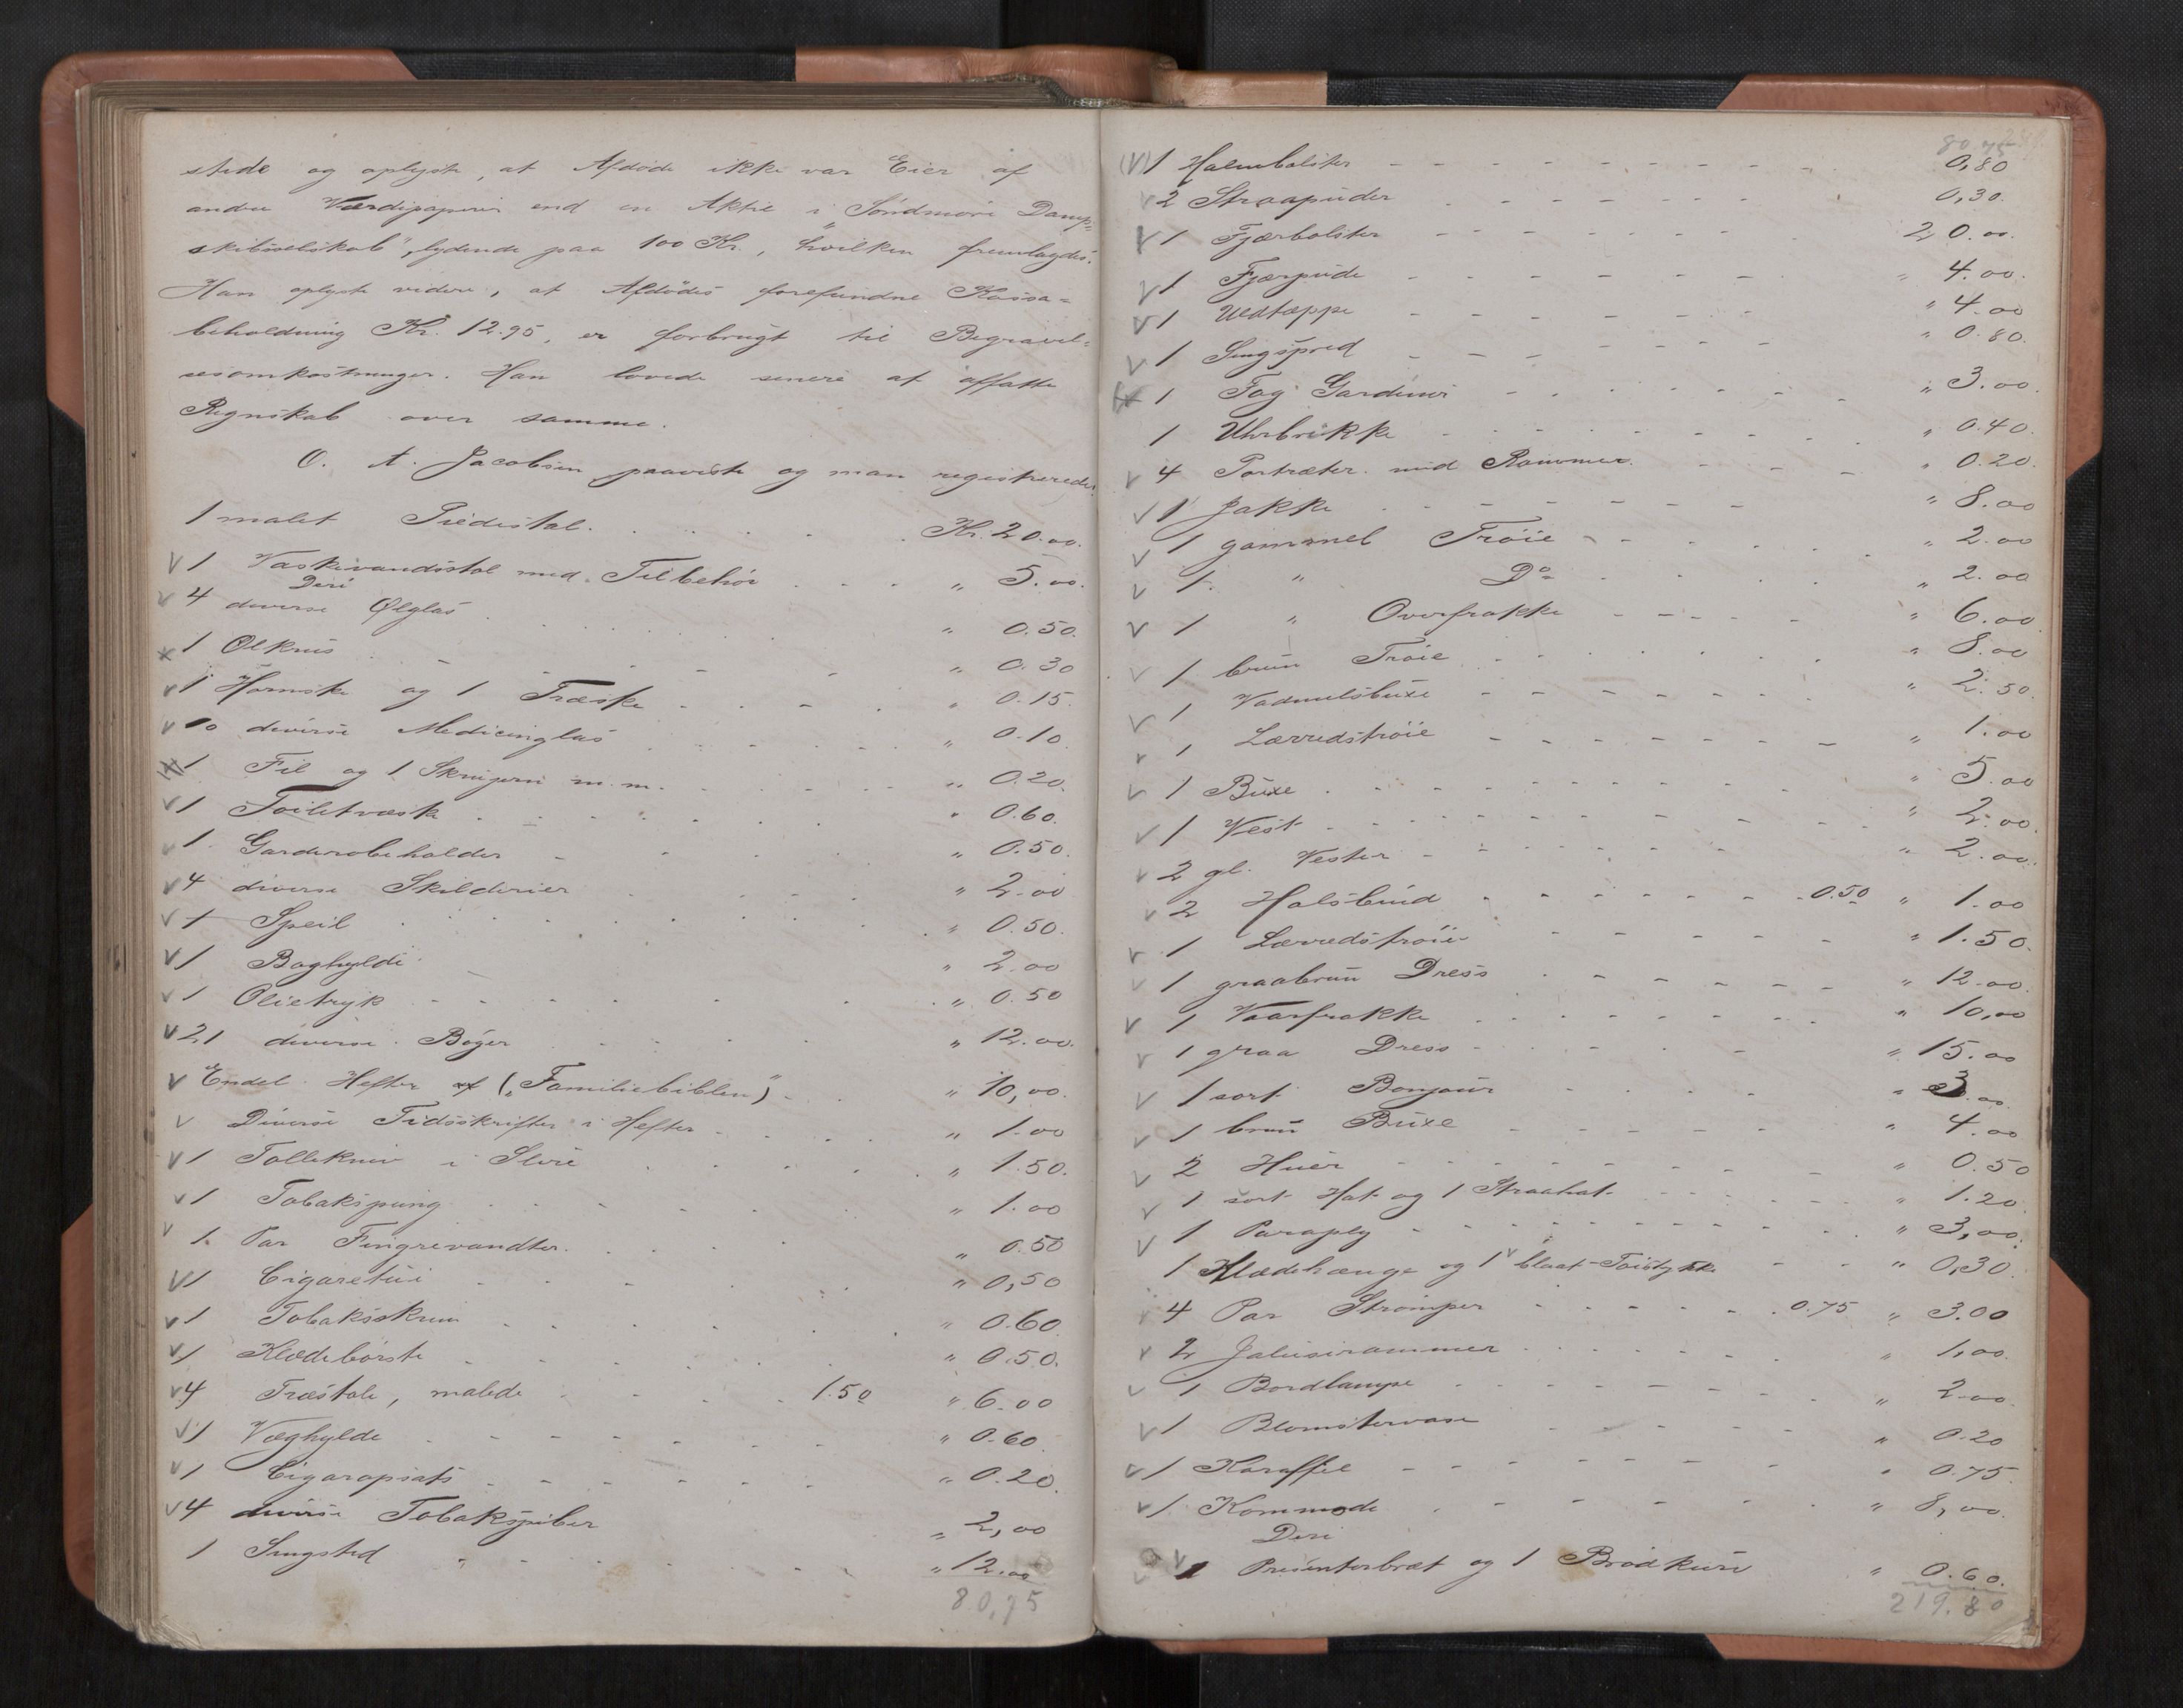 stede og oplyste, at Afdøde ikke var Eier af
andre Værdipapirer end en Aktie i "Søndmøre Damp-
skibsselskab", lydende paa 100 Kr., hvilken fremlagdes.
Han oplyste videre, at Afdødes forefundne Kassa-
beholdning Kr. 12.95, er forbrugt til Begravel-
sesomkostninger. Han lovede senere at affatte
Regnskab over samme.
O. A. Jacobsen paaviste og man registrerede:
1 malet Piedestal Kr. 20.00
V 1 Vaskevandsstol med Tilbehør " 5.00
V 4 diverse Ølglas " 0.50
1 Ølkrus " 0.30
V 1 Hornske og 1 Træske " 0.15
V 10 diverse Medicinglas " 0.10
1 Fil og 1 Skrujern m.m. " 0.20
V 1 Toiletvæske " 0.60
V 1 Garderobeholder " 0.50
V 4 diverse Skilderier " 2.00
V 1 Speil " 0.50
V 1 Boghylde " 2.00
V 1 Olietryk " 0.50
V 21 diverse Bøger " 12.00
V Endel Hefter af ("Familiebiblen") " 10,00
V Diverse Tidsskrifter i Hefter " 1.00
V 1 Tollekniv i Slire " 1.50
V 1 Tobakspung " 1.00
V 1 Par Fingrevandter " 0.50
V 1 Cigaretui " 0,50
V 1 Tobaksskrin " 0.60
V 1 Klædebørste " 0.50
V 4 Træstole, malede 1.50 " 6.00
V 1 Væghylde " 0.60
V 1 Cigaropsats " 0.20
V 4 diverse Tobakspiber " 2,00
1 Sengsted " 12.00
80,75
80.75
(V) 1 Halmbolster 0,80
V 2 Straapuder 0,30
V 1 Fjærbolster 20.00
V 1 Fjærpude " 4.00
V 1 Uldtæppe " 4.00
V 1 Sengspred " 0.80
1 Fag Gardiner " 3.00
1 Uhrbrikke " 0.40
V 4 Portræter med Rammer " 0.20
V 1 Jakke " 8.00
V 1 gammel Trøie " 2.00
V 1 " Do " 2.00
V 1 " Overfrakke " 6.00
V 1 brun Trøie " 8.00
V 1 Vadmelsbuxe " 2.50
V 1 Lærredstrøie " 1.00
V 1 Buxe " 5.00
V 1 Vest " 2.00
V 2 gl. Vester " 2.00
V 2 Halsbind 0.50 " 1.00
V 1 Lærredstrøie " 1.50
V 1 graabrun Dress " 12.00
V 1 Vaarfrakke " 10,00
V 1 graa Dress " 15.00
V 1 sort Bonjour " 3.00
V 1 brun Buxe " 4.00
V 2 Huer " 0.50
V 1 sort Hat og 1 Straahat " 1.20
V 1 Paraply " 3,00
1 Klædehænge og 1 V blaat Tøistykke " 0,30
4 Par Strømper 0.75 " 3.00
V 2 Jalusirammer " 1,00
V 1 Bordlampe " 2.00
V 1 Blomstervase " 0.20
V 1 Karaffel " 0.75
V 1 Kommode " 8,00
V 1 Presenterbræt og 1 Brødkurv " 0.60
219.80